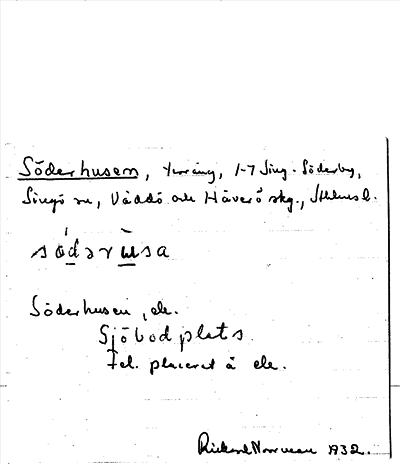 Söderhusen, terräng, 1-7 Sing-Söderby,
Singö sn, Väddö och Häverö skg., Sthlms l.
södərùsa
Söderhusen, ek.
Sjöbodplats.
Fel. placerat å ek.
Rickard Norrman 1932.